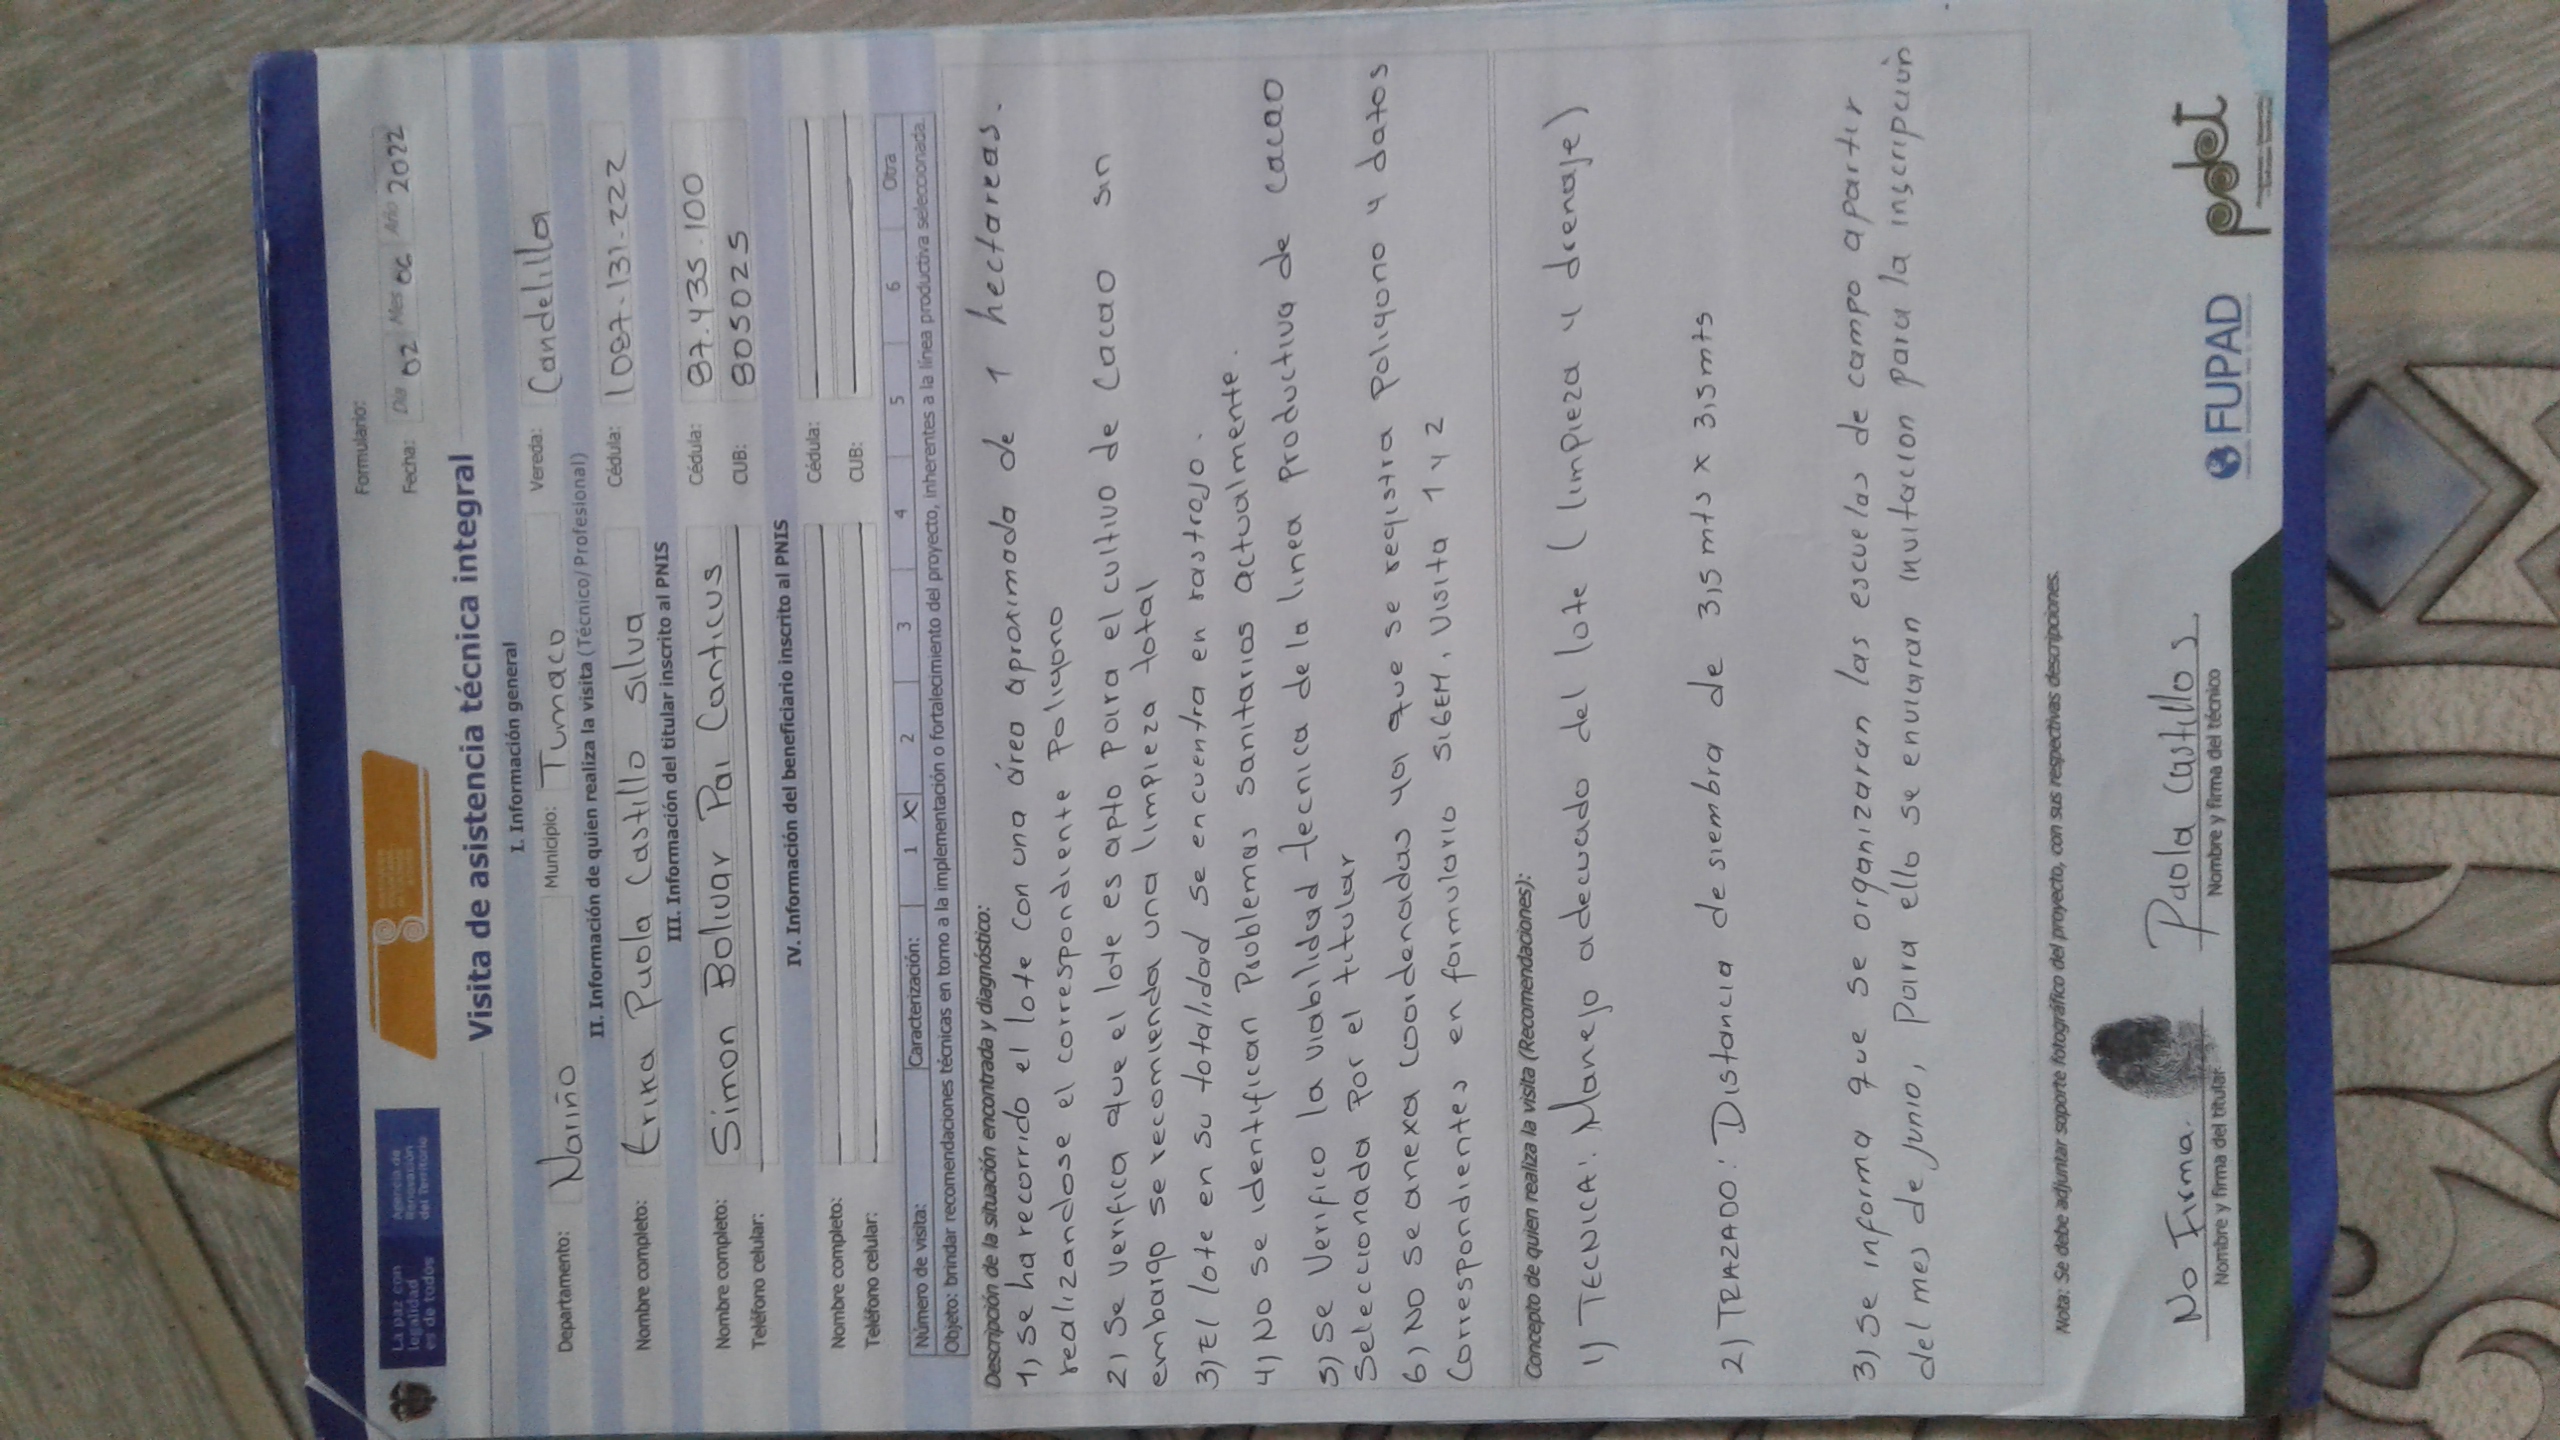 La paz con
legalidad
es de todos
Agencia de
Renovación
del Territorio
Formulario:
Fecha: Día 02 Mes 06 Año 2022
Visita de asistencia técnica integral
I. Información general
Departamento: Nariño Municipio: Tumaco Vereda: Candelilla
II. Información de quien realiza la visita (Técnico/Profesional)
Nombre completo: Erika Paola Castillo Silva Cédula: 1087.131.222
III. Información del titular inscrito al PNIS
Nombre completo: Simon Bolivar Pai Canticus Cédula: 87.435.100
Teléfono celular: CUB: 805025
IV. Información del beneficiario inscrito al PNIS
Nombre completo: Cédula:
Teléfono celular: CUB:
Número de visita: Caracterización: 1 X 2 3 4 5 6 Otra
Objeto: brindar recomendaciones técnicas en torno a la implementación o fortalecimiento del proyecto, inherentes a la línea productiva seleccionada.
Descripción de la situación encontrada y diagnóstico:
1) se ha recorrido el lote con una área aproximada de 1 hectareas.
realizandose el correspondiente Poligono
2) Se verifica que el lote es apto para el cultivo de Cacao sin
embargo se recomienda una limpieza total
3) El lote en su totalidad se encuentra en rastrojo.
4) No se identifican Problemas sanitarios actualmente.
5) Se Verifico la viabilidad tecnica de la linea Productiva de cacao
Seleccionada Por el titular
6) No se anexa coordenadas ya que se registra Poligono y datos
Correspondientes en formulario SIGEM, Visita 1 y 2
Concepto de quien realiza la visita (Recomendaciones):
1) TECNICA: Manejo adecuado del lote (limpieza y drenaje)
2) TRAZADO: Distancia de siembra de 3,5 mts x 3,5 mts
3) Se informa que se organizaran las escuelas de campo apartir
del mes de junio, Para ello se enviaran invitacion para la inscripción
Nota: Se debe adjuntar soporte fotográfico del proyecto, con sus respectivas descripciones.
No Firma. Paola Castillo S
Nombre y firma del titular Nombre y firma del técnico
FUPAD pdet